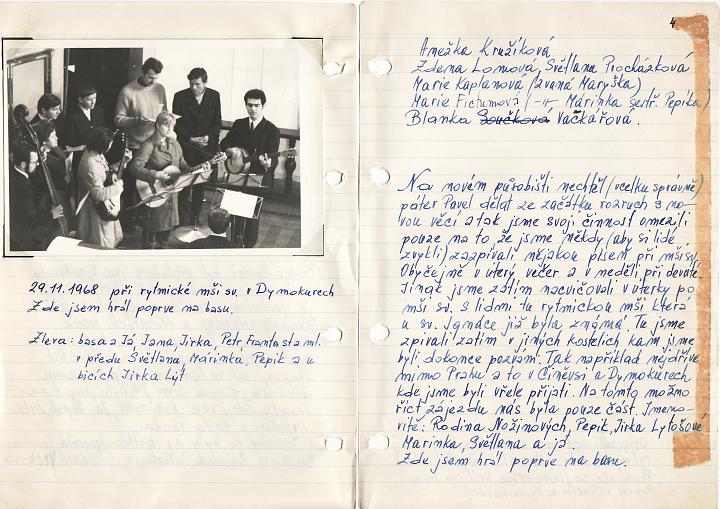 29.11.1968 při rytmické mši sv. v Dymokurech
Zde jsem hrál poprve na basu.
Zleva: basa a Já, Jana, Jirka, Petr, Franta sta ml.
v předu Světlana, Márinka, Pepik a u
bicích Jirka Lyt
4
Anežka Kružíková
Zdena Lomová, Světlana Procházková
Marie Kaplanová (zvaná Maryška)
Marie Fictumová (-"-, Márinka sestř. Pepika)
Blanka Součková Vačkářová.
Na novém působišti nechtěl (vcelku správně)
páter Pavel dělat ze začátku rozruch s no-
vou věcí a tak jsme svoji činnost omezili
pouze na to že jsme někdy (aby si lidé
zvykli) zazpívali nějakou píseň při mši sv.
Obyčejně v úterý večer a v neděli při deváté.
Jinak jsme zatím nacvičovali v úterky po
mši sv. s lidmi tu rytmickou mši která
u sv. Ignáce již byla známá. Tu jsme
zpívali zatím v jiných kostelích kam jsme
byli dokonce pozváni. Tak například nejdříve
mimo Prahu a to v Činěvsi a Dymokurech
kde jsme byli vřele přijati. Na tomto možno
říct zájezdu nás byla pouze část. Jmeno-
vitě: Rodina Nožinových, Pepik, Jirka Lytošové
Marinka, Světlana a já.
Zde jsem hrál poprve na basu.